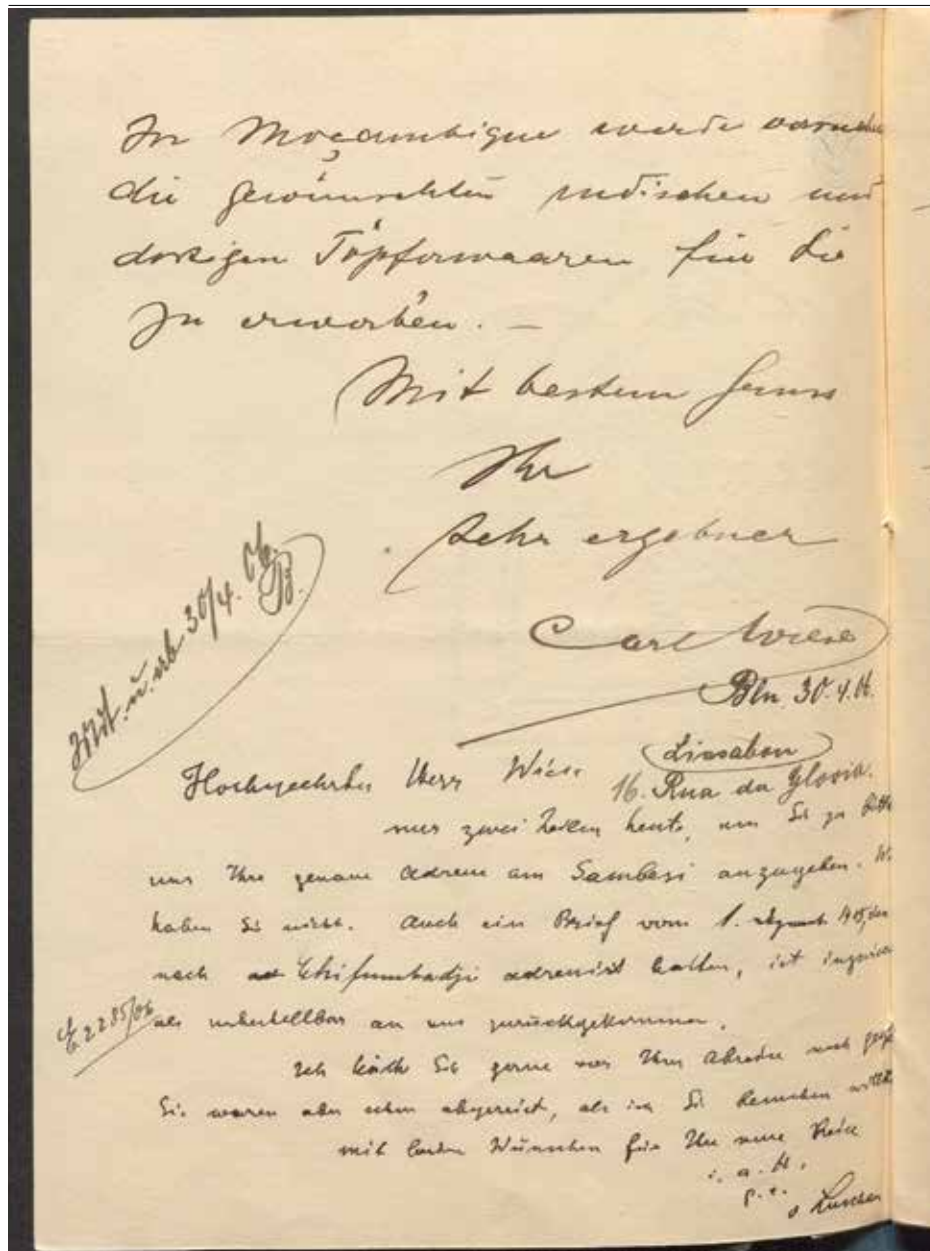 In Moçambique werde versuchen
die gewünschten indischen und
dortigen Töpferwaaren für Sie
zu erwerben. —
Mit bestem Gruss
Ihr
sehr ergebner
Carl Wiese
Mit. u. erb 30/4. 06.
B.
Bln. 30.4.06.
Hochgeehrter Herr Wiese
Lissabon
16. Rua da Gloria.
nur zwei Zeilen heute, um Sie zu bitten
uns Ihre genaue Adresse am Sambesi anzugeben. Wir
haben Sie nicht. Auch ein Brief vom 1. August 1905, den
nach Chifumbadji adressirt hatten, ist inzwischen
E 2285/06
als unbestellbar an uns zurückgekommen.
Ich hätte Sie gerne vor Ihrer Abreise noch
Sie waren aber schon abgereist, als ich Sie besuchen wollte
mit besten Wünschen für Ihre neue Reise
i. a. H.
p. t.
v Luschan